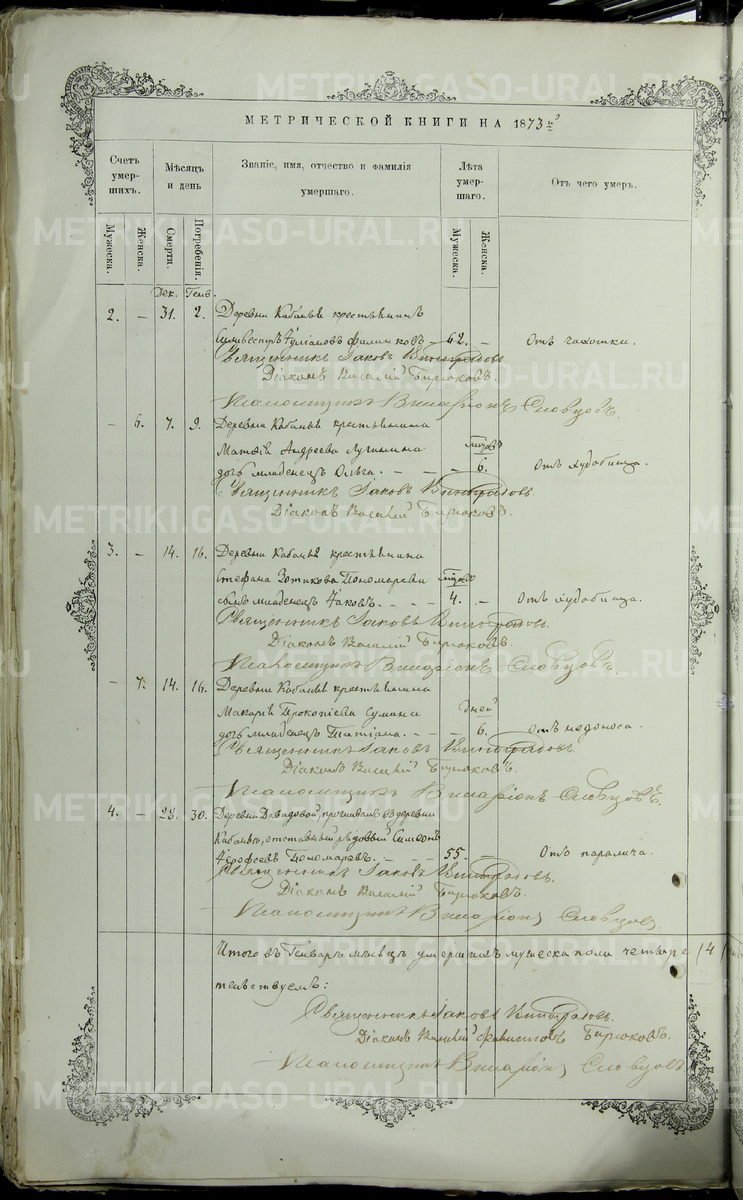 МЕТРИЧЕСКОЙ КНИГИ НА 1873й
Счетъ умер-шихъ. Мѣсяцъ и день Званіе, имя, отчество и фамилія умершаго. Лѣта умер-шаго. Отъ чего умеръ.
Мужеска. Женска. Смерти. Погребенія. Мужеска. Женска.
Дек. Генв.
2. – 31. 2. Деревни Кабаньи крестьянинъ
Сильвестръ 62. – Отъ чахотки.
Священникъ Іаковъ Виноградовъ
Діаконъ Василій Бирюковъ.
Псаломщикъ Виссаріонъ Словцовъ.
– 6. 7. 9. Деревни Кабаньи крестьянина
Матѳія Андреева мѣсяцовъ
дочь младенецъ Ольга. – – – 6. Отъ худобища.
Священникъ Іаковъ Виноградовъ
Діаконъ Василій Бирюковъ.
3. – 14. 16. Деревни Кабаньи крестьянина
Стефана Зотикова Пономарева мѣсяцовъ
сынъ младенецъ Іаковъ. – – – 4. – Отъ худобища.
Священникъ Іаковъ Виноградовъ.
Діаконъ Василій Бирюковъ.
Псаломщикъ Виссаріонъ Словцовъ.
– 7. 14. 16. Деревни Кабаньи крестьянина
Макарія Прокопіева дней
дочь младенецъ Татіана. – – – 6. Отъ недоноса.
Священникъ Іаковъ Виноградовъ.
Діаконъ Василій Бирюковъ.
Псаломщикъ Виссаріонъ Словцовъ.
4. – 28. 30. Деревни Давыдовой, въ деревни
Кабаньи, отставный рядовый Симеонъ
Іерофеевъ Пономаревъ. – – – 55. – Отъ паралича.
Священникъ Іаковъ Виноградовъ.
Діаконъ Василій Бирюковъ.
Псаломщикъ Виссаріонъ Словцовъ.
Итого въ Генварѣ мѣсяцѣ умершихъ мужеска пола четыре (4)
Священникъ Іаковъ Виноградовъ.
Діаконъ Василій Бирюковъ.
Псаломщикъ Виссаріонъ Словцовъ
METRIKI.GASO-URAL.RU